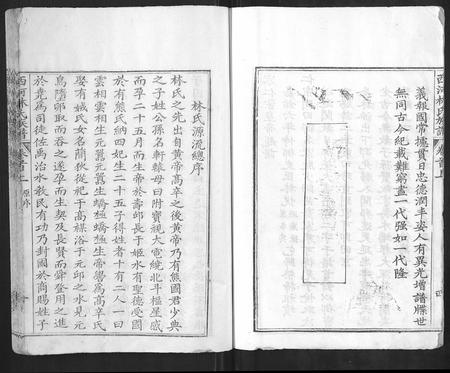 西河林氏族譜
卷首上
義報國常擴貫日忠德潤丰姿人有異光增譜牒世
無同古今紀載難窮盡一代强如一代隆
林氏源流總序
林氏之先出自黃帝高辛之後黃帝乃有熊國君少典
之子姓公孫名軒轅母曰附寶視大電繞北斗樞星感
而孕二十五月而生帝於壽邱長于姬水有聖德受國
於有熊氏納四妃生二十五子得姓者十有二人一曰
雲相雲相生元囂元囂生蟜極蟜極生帝嚳為高辛氏
娶有娀氏女名簡狄從祀于高禖浴于元邱之水見元
鳥隋卵取而吞之遂孕而生契及長賢而舜登用之進
於堯為司徒佐禹治水敎民有功乃封國於商賜姓子
西河林氏族譜
卷首上
源序